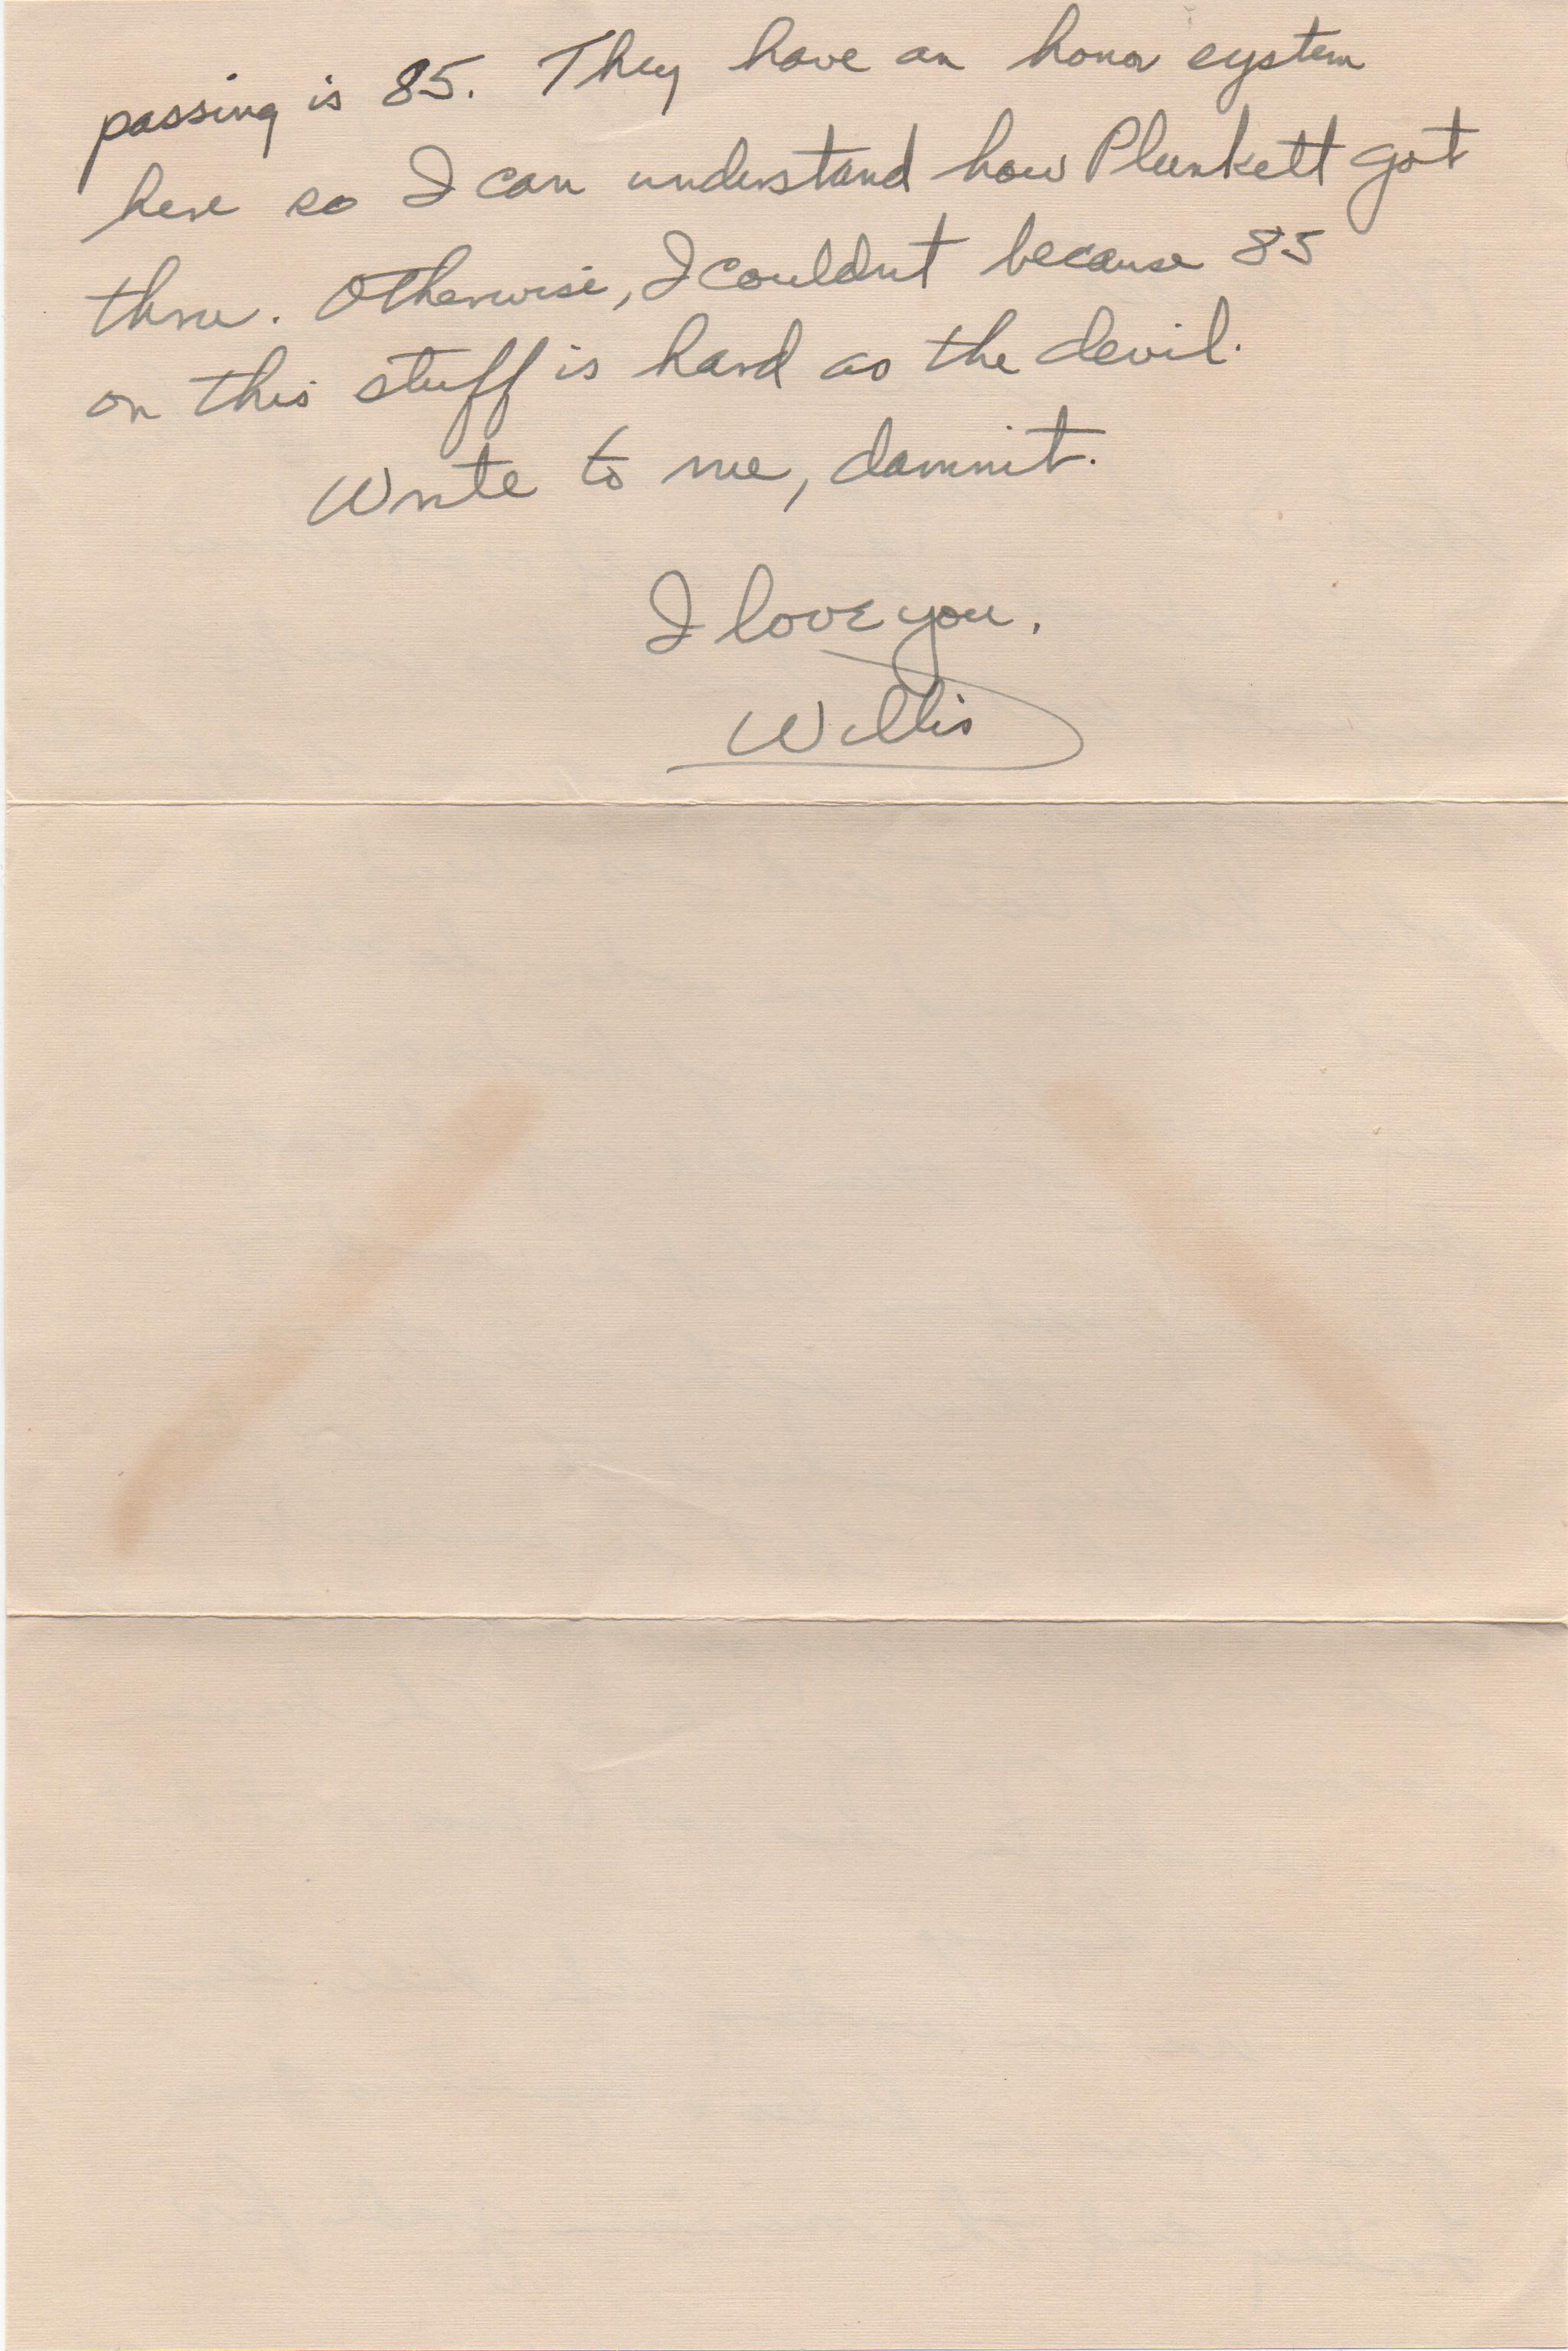 passing is 85. They have an honor system
here so I can understand how Plunkett got
thru. Otherwise, I couldnt because 85
on this stuff is hard as the devil.
Write to me, damnit.
I love you.
Willis